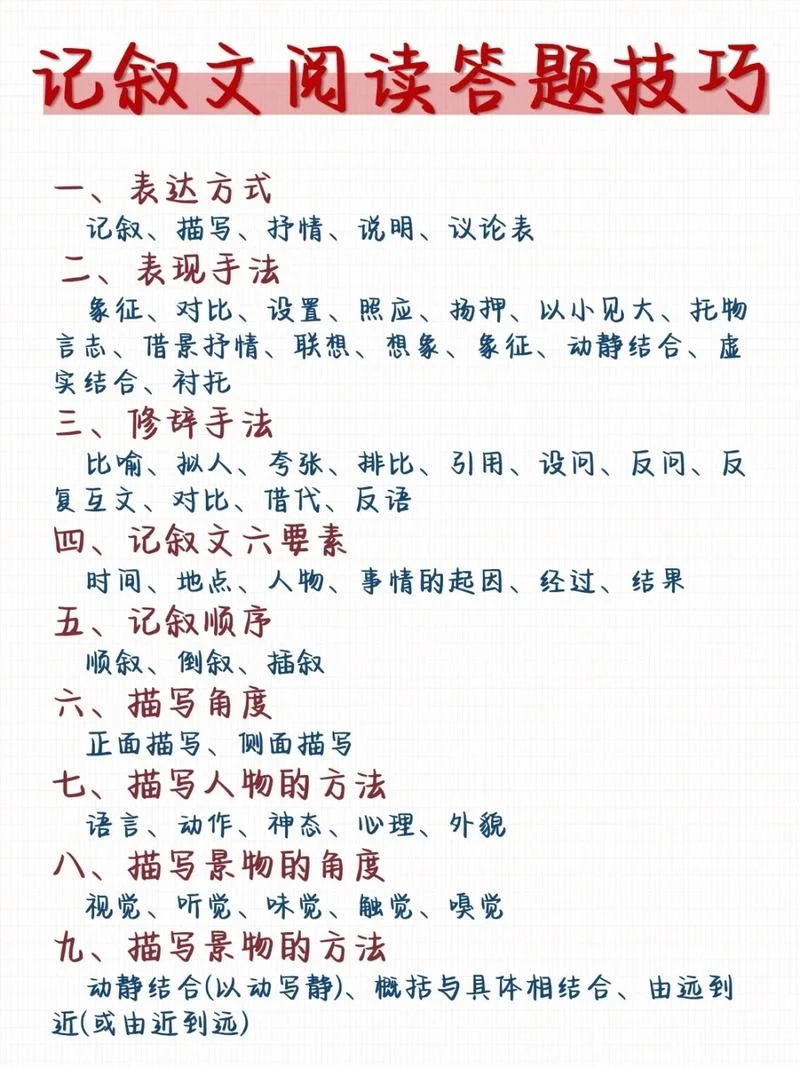 记叙文阅读答题技巧
一、表达方式
记叙、描写、抒情、说明、议论表
二、表现手法
象征、对比、设置、照应、扬押、以小见大、托物
言志、借景抒情、联想、想象、象征、动静结合、虚
实结合、衬托
三、修辞手法
比喻、拟人、夸张、排比、引用、设问、反问、反
复互文、对比、借代、反语
四、记叙文六要素
时间、地点、人物、事情的起因、经过、结果
五、记叙顺序
顺叙、倒叙、插叙
六、描写角度
正面描写、侧面描写
七、描写人物的方法
语言、动作、神态、心理、外貌
八、描写景物的角度
视觉、听觉、味觉、触觉、嗅觉
九、描写景物的方法
动静结合(以动写静)、概括与具体相结合、由远到
近(或由近到远)